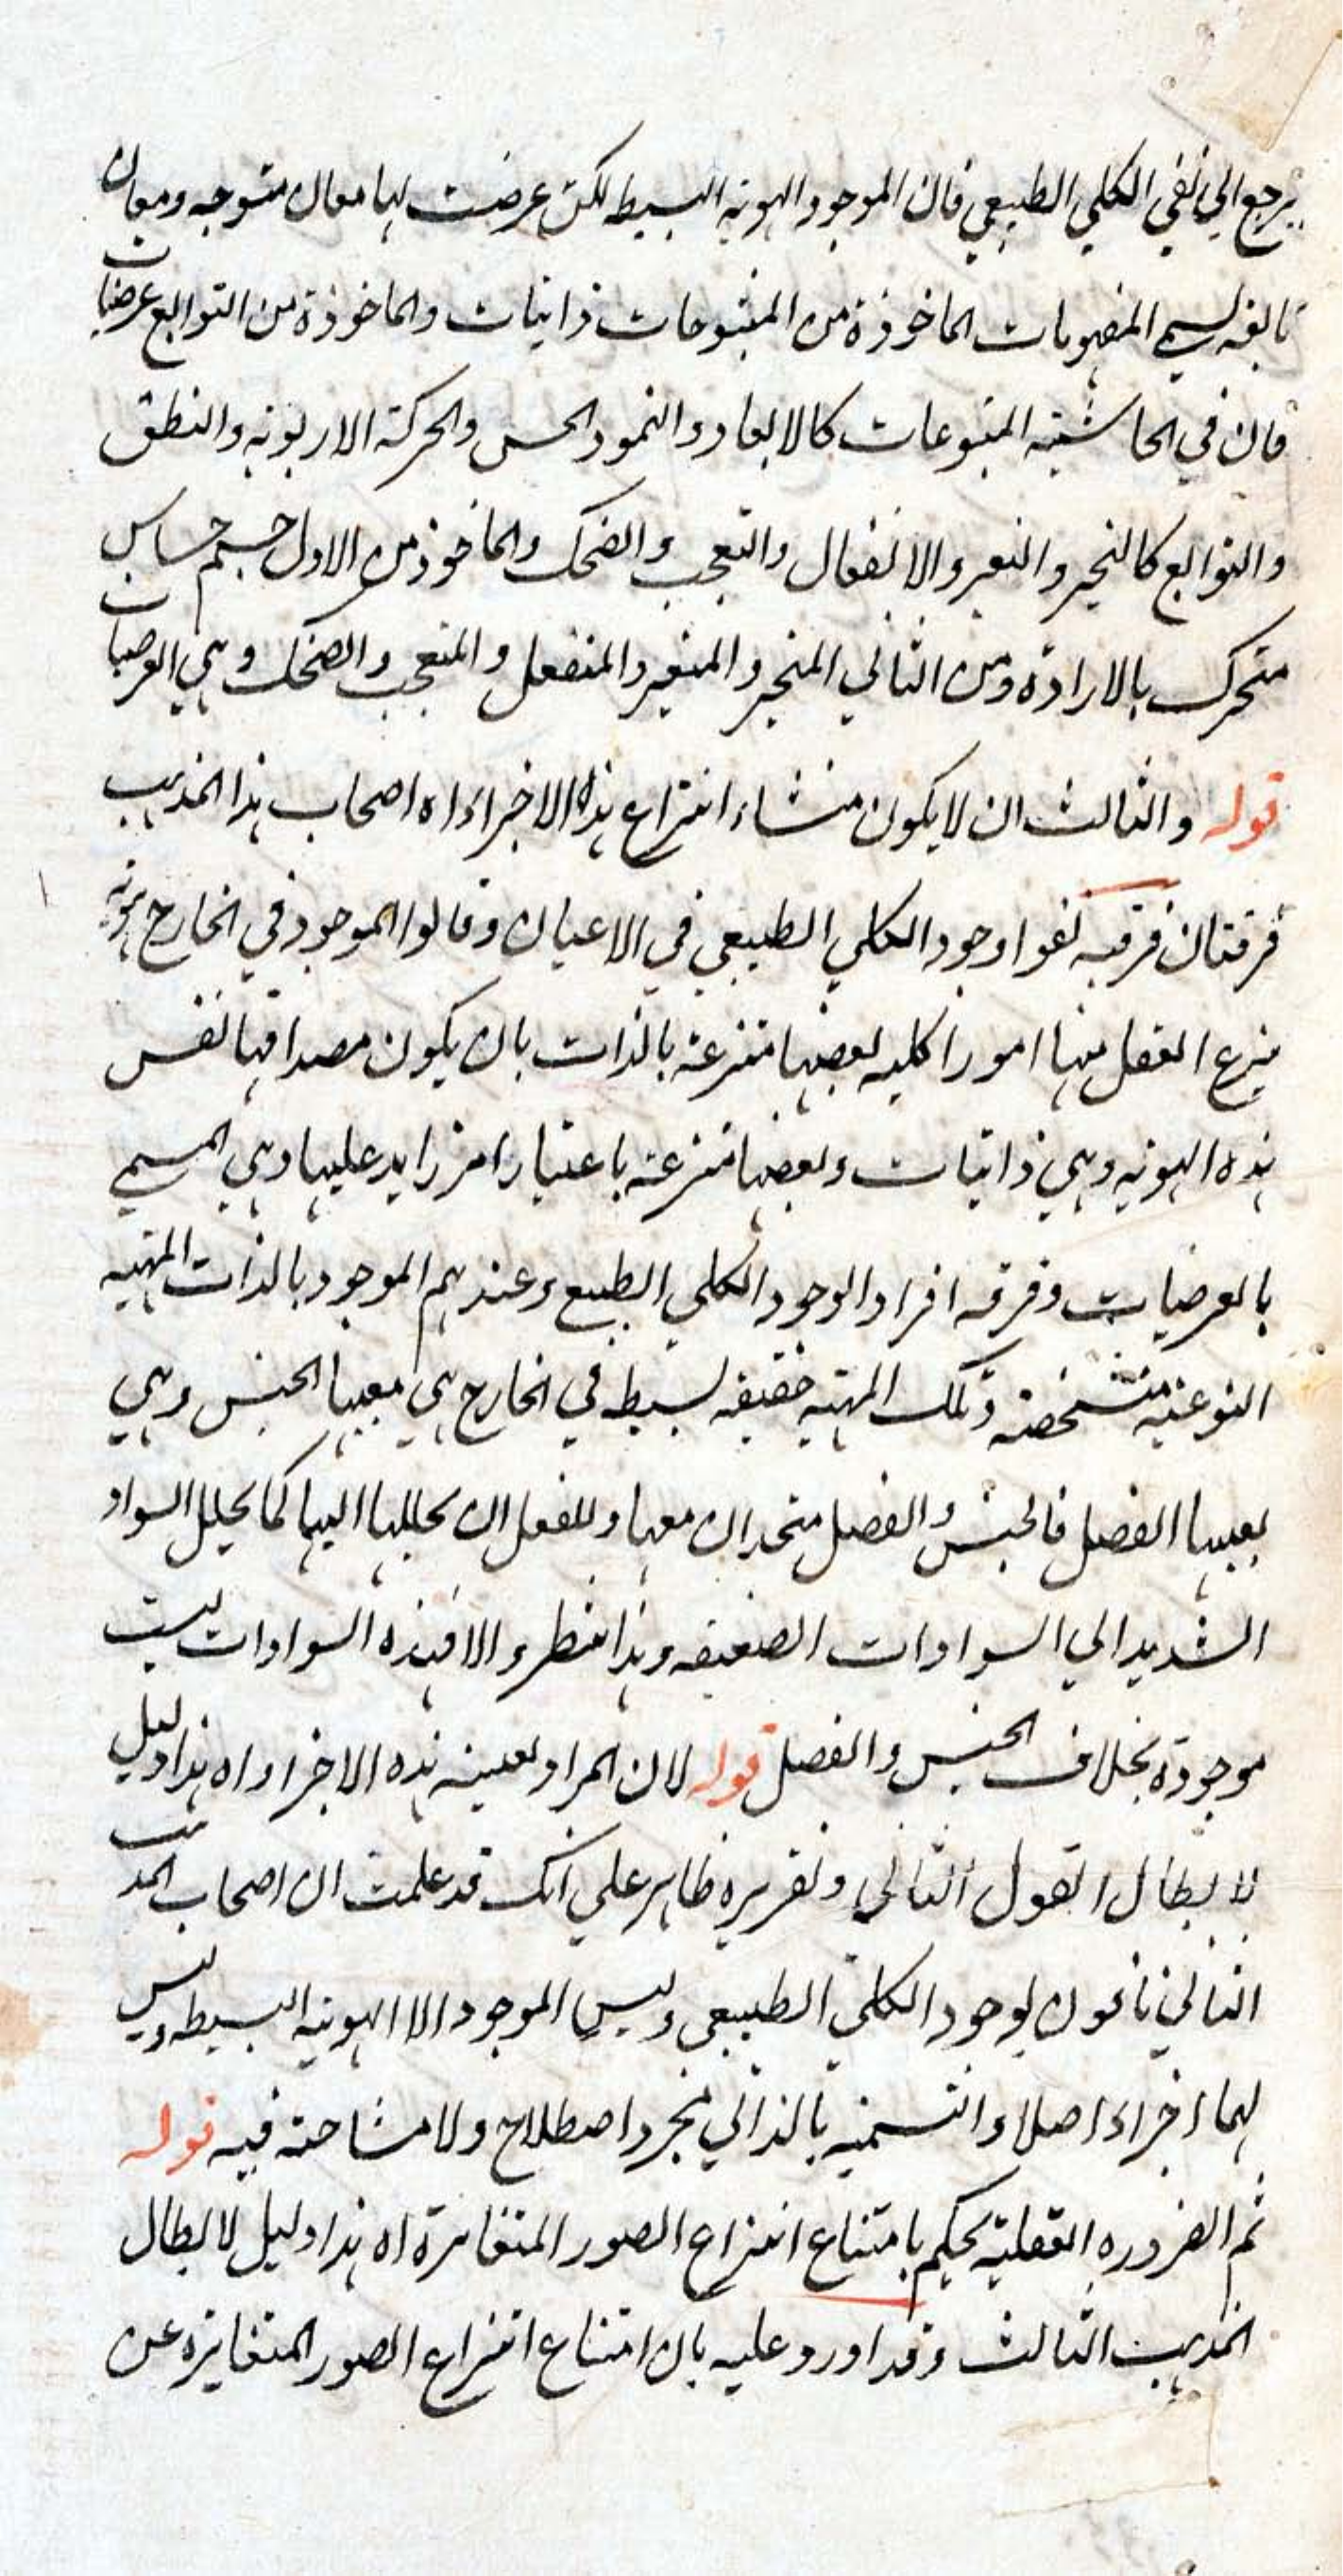 يرجع الي نفي الكلي الطبيعي فان الموجود الهوية البسيطه لكن عرضت لها معان متبوعه ومعان
تابعه يسمي المفهومات الماخوذة من المتبوعات ذاتيات والماخوذة من التوابع عرضيات
قال في الحاشية المتبوعات كالابعاد والنمو والحس والحركة الارادية والنطق
والتوابع كالتحيز والتغير والانفعال والتعجب والضحك والماخوذ من الاول جسم حساس
متحرك بالارادة ومن الثاني المتحيز والمتغير والمنفعل والمتعجب والضحك وهي العرضيات
قوله والثالث ان لا يكون منشاء انتزاع هذه الاجزاء اه اصحاب هذا المذهب
فرقتان فرقه نفوا وجود الكلي الطبيعي في الاعيان وقالوا الموجود في الخارج هوية
ينزع العقل منها امورا كليه بعضها منتزعة بالذات بان يكون مصداقها نفس
هذه الهويه وهي ذاتيات وبعضها منتزعة باعتبار امر زايد عليها وهي المسمي
بالعرضيات وفرقه اقروا لوجود الكلي الطبيعي وعندهم الموجود بالذات المهية
النوعية متشخصة وتلك المهيه حقيقه بسيطه في الخارج هي بعينها الجنس وهي
بعينها الفصل فالجنس والفصل متحدان معها وللعقل ان يحللها اليهما كما يحلل السواد
الشديد الي السوادات الضعيفه وهذا منظر والا فهذه السوادات ليست
موجودة بخلاف الجنس والفصل قوله لان المراد بعينية هذه الاجزاء اه هذا دليل
لابطال القول الثاني وتقريره ظاهر علي انك قد علمت ان اصحاب المذهب
الثاني نافون لوجود الكلي الطبيعي وليس الموجود الا الهوية البسيطه وليس
لهما اجزاء اصلا والتسمية بالذاتي مجرد اصطلاح ولا مشاحة فيه قوله
ثم الضروره العقلية يحكم بامتناع انتزاع الصور المتغايرة اه هذا دليل لابطال
المذهب الثالث وقد اورد عليه بان امتناع انتزاع الصور المتغايره عن